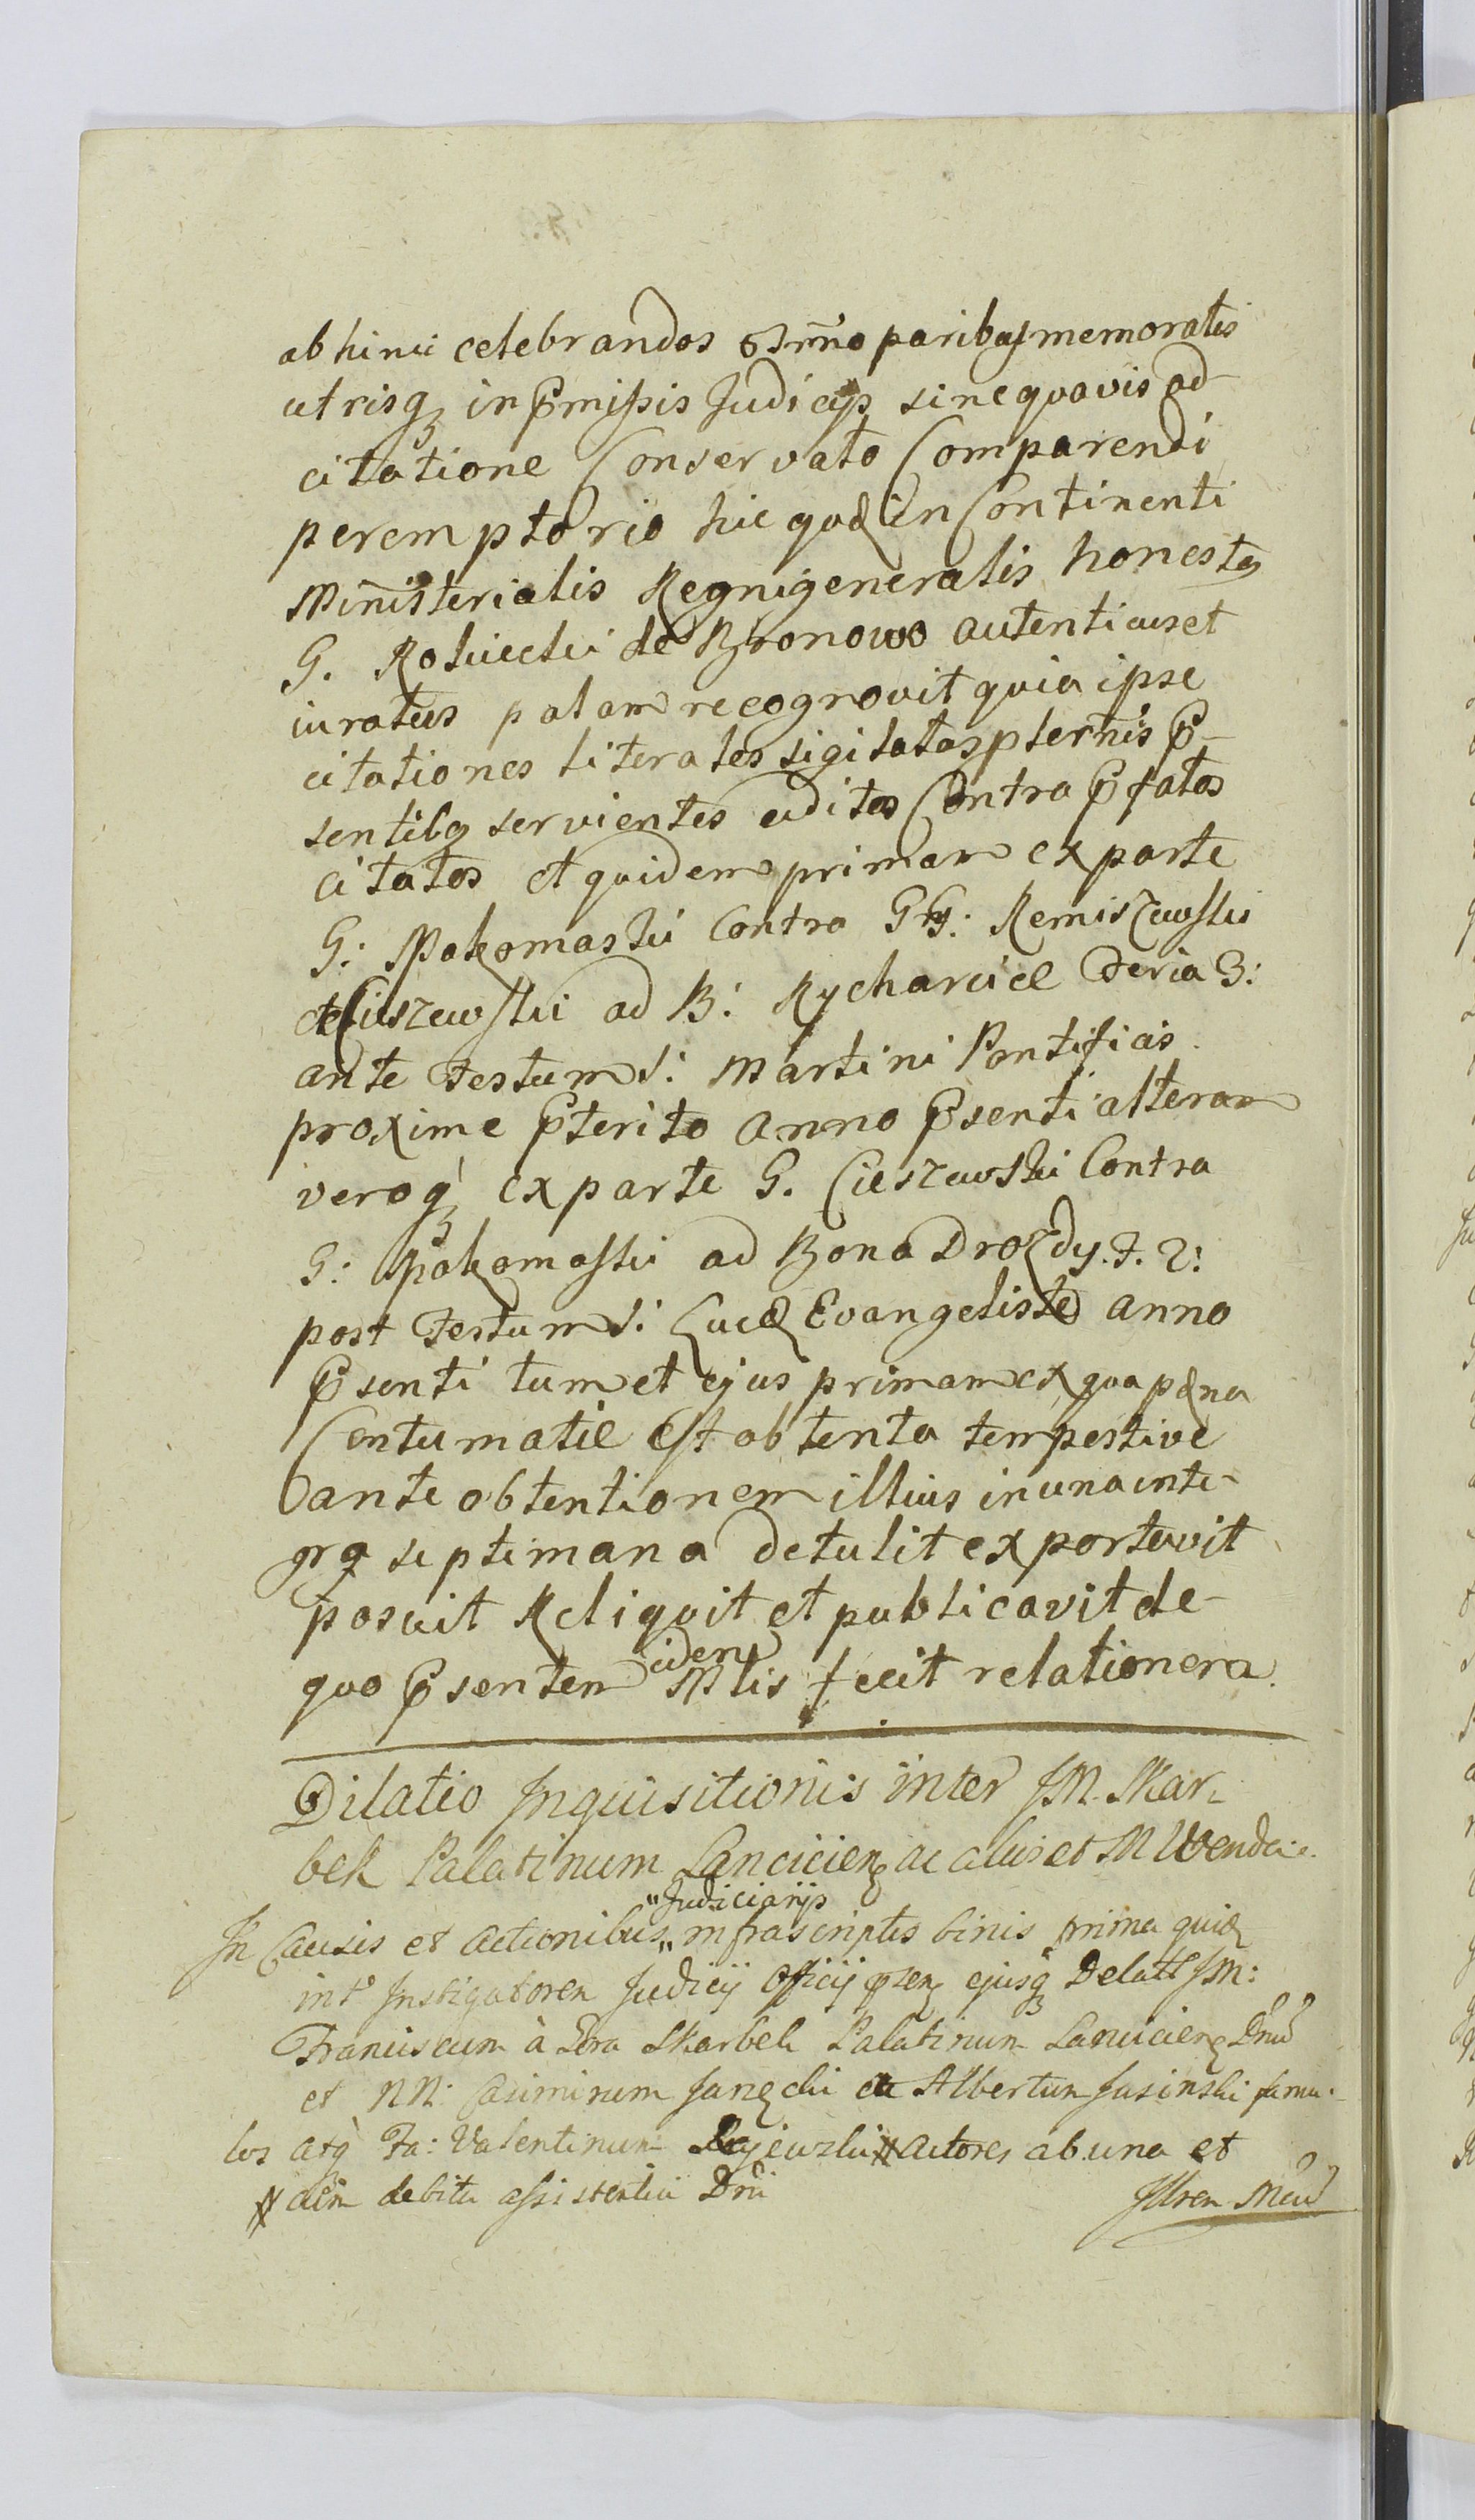 ab hinc celebrandos Trmno paribus memoratis
utrisq in Pmissis Judicijs sine quavis ad
citatione Conservato Comparendi
peremptorio hic quoq in Continenti
Ministerialis Regni generalis honestus
G. Rokicki de Bronowo autenticus et
iuratus palam recognovit quia ipse
citationes literales sigilatas pternis P-
sentibq servientes editas Contra Pfatos
citatos et quidem primam ex parte
G: Makomaski Contra GG: Remiszewski
et Cieszewski ad B: Rycharcice Feria 3:
ante Festum S: Martini Pontificis
proxime Pterito anno Psenti alteram
veroq ex parte G. Cieszewski Contra
G: Makomaski ad Bona Drozdy. F. 2:
post Festum S: Lucę Evangelistę anno
Psenti tum et ejus primam ex qua pęna
Contumatię est obtenta tempestive
ante obtentionem illius in una inte-
gra septimana detulit exportavit
posuit Reliquit et publicavit de-
quo Psentem idem Mlis fecit relationem.
Dilatio Inquisitionis inter JM. Skar-
bek Palatinum Lancicien ac alios et M Wenda
In Causis et actionibus "Judiciarijs" infrascriptis binis prima quid
int Instigatorem Judicij Officij psen ejusq Delatt JM:
Franciscum à Gora Skarbek Palatinum Lancicien Dnum
et NN: Casimirum Janecki ac Albertum Jasinski famu-
los atq Fa: Valentinum Actores ab una et
cum debita assistentia Dni
Illrem Mcum